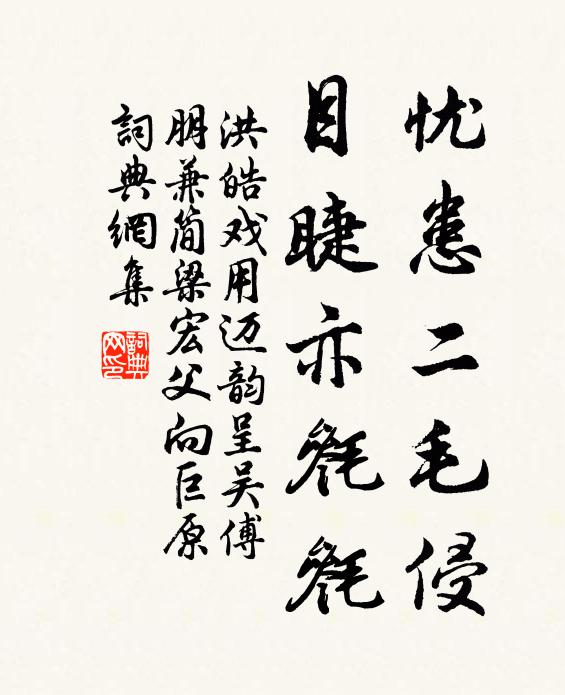 忧患二毛侵
目睫亦毵毵
洪皓戏用迈韵呈吴傅
朋兼简梁宏父向巨原
詞典網集
詞典
网印